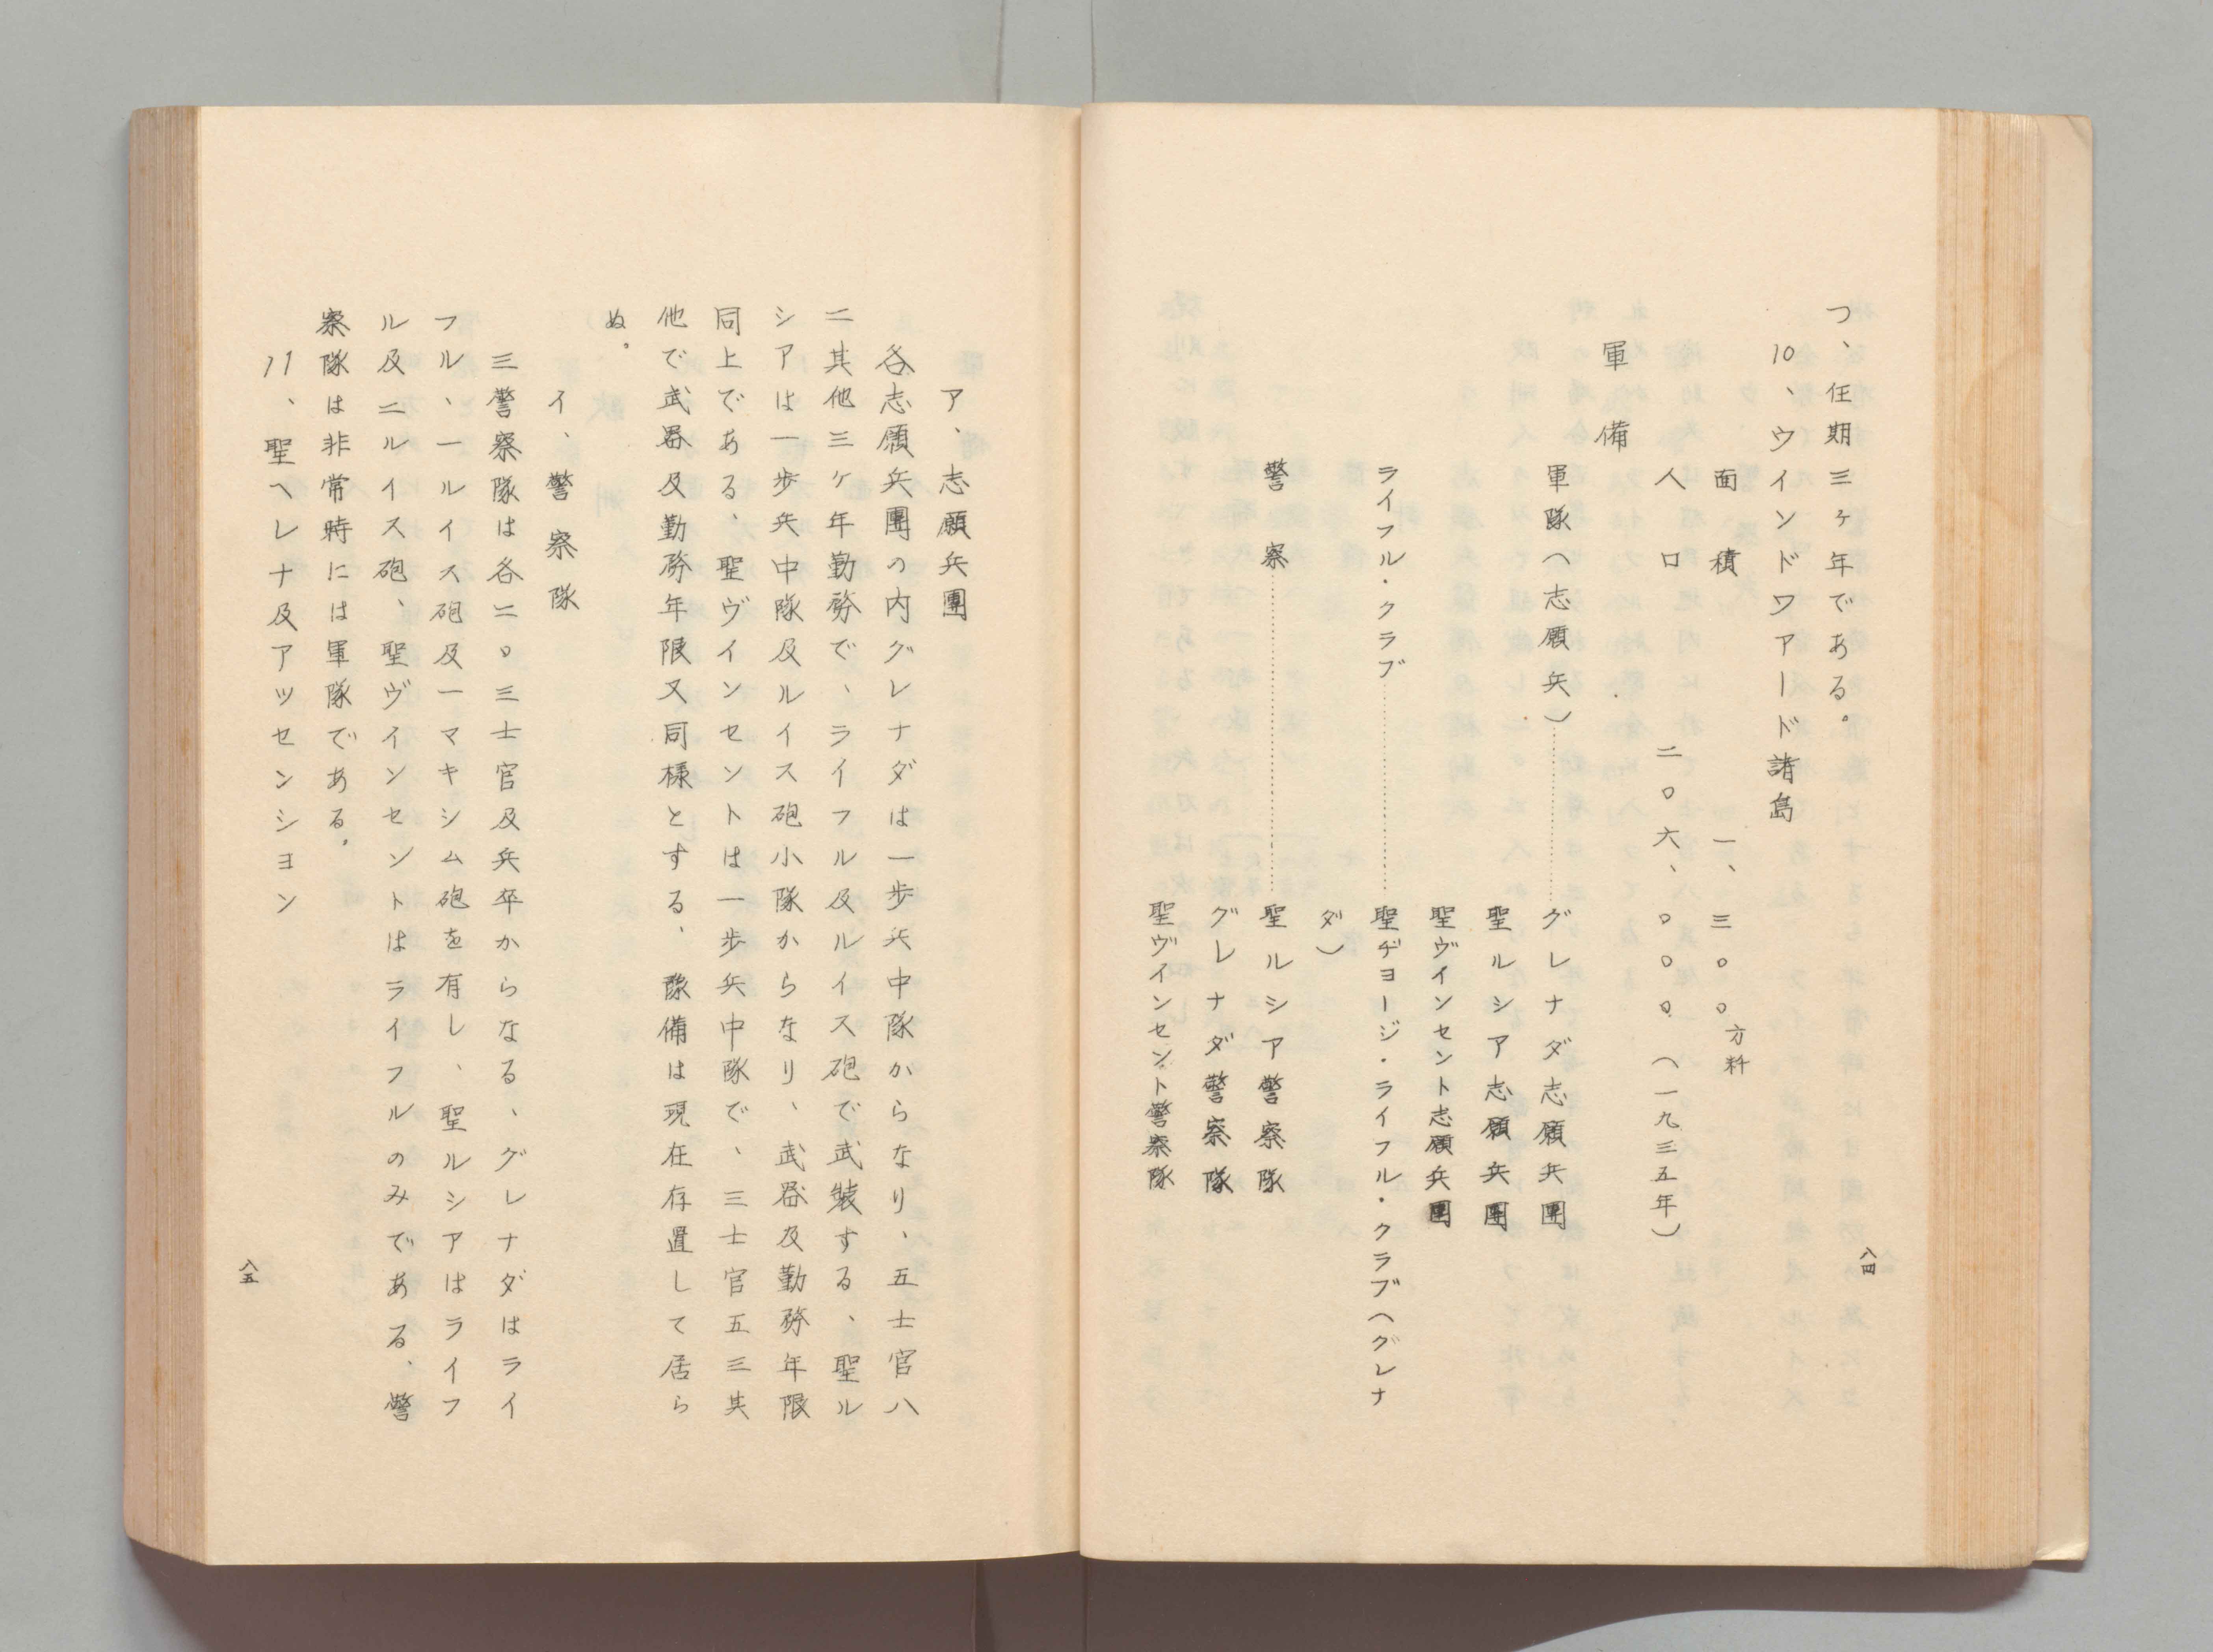 つ、任期三ヶ年である。
10、ウインドワアード諸島
面積 一、三〇〇方粁
人口 二〇六、〇〇〇(一九三五年)
軍備
軍隊(志願兵)…………グレナダ志願兵團
聖ルシア志願兵團
聖ヴインセント志願兵團
ライフル・クラブ…………聖ヂョージ・ライフル・クラブ(グレナ
ダ)
警察…………聖ルシア警察隊
グレナダ警察隊
聖ヴインセント警察隊
八四
ア、志願兵團
各志願兵團の内グレナダは一歩兵中隊からなり、五士官八
二其他三ヶ年勤務で、ライフル及ルイス砲で武裝する、聖ル
シアは一歩兵中隊及ルイス砲小隊からなり、武器及勤務年限
同上である、聖ヴインセントは一歩兵中隊で、三士官五三其
他で武器及勤務年限又同様とする、豫備は現在存置して居ら
ぬ。
イ、警察隊
三警察隊は各二〇三士官及兵卒からなる、グレナダはライ
フル、一ルイス砲及一マキシム砲を有し、聖ルシアはライフ
ル及ニルイス砲、聖ヴインセントはライフルのみである、警
察隊は非常時には軍隊である。
11、聖ヘレナ及アツセンシヨン
八五